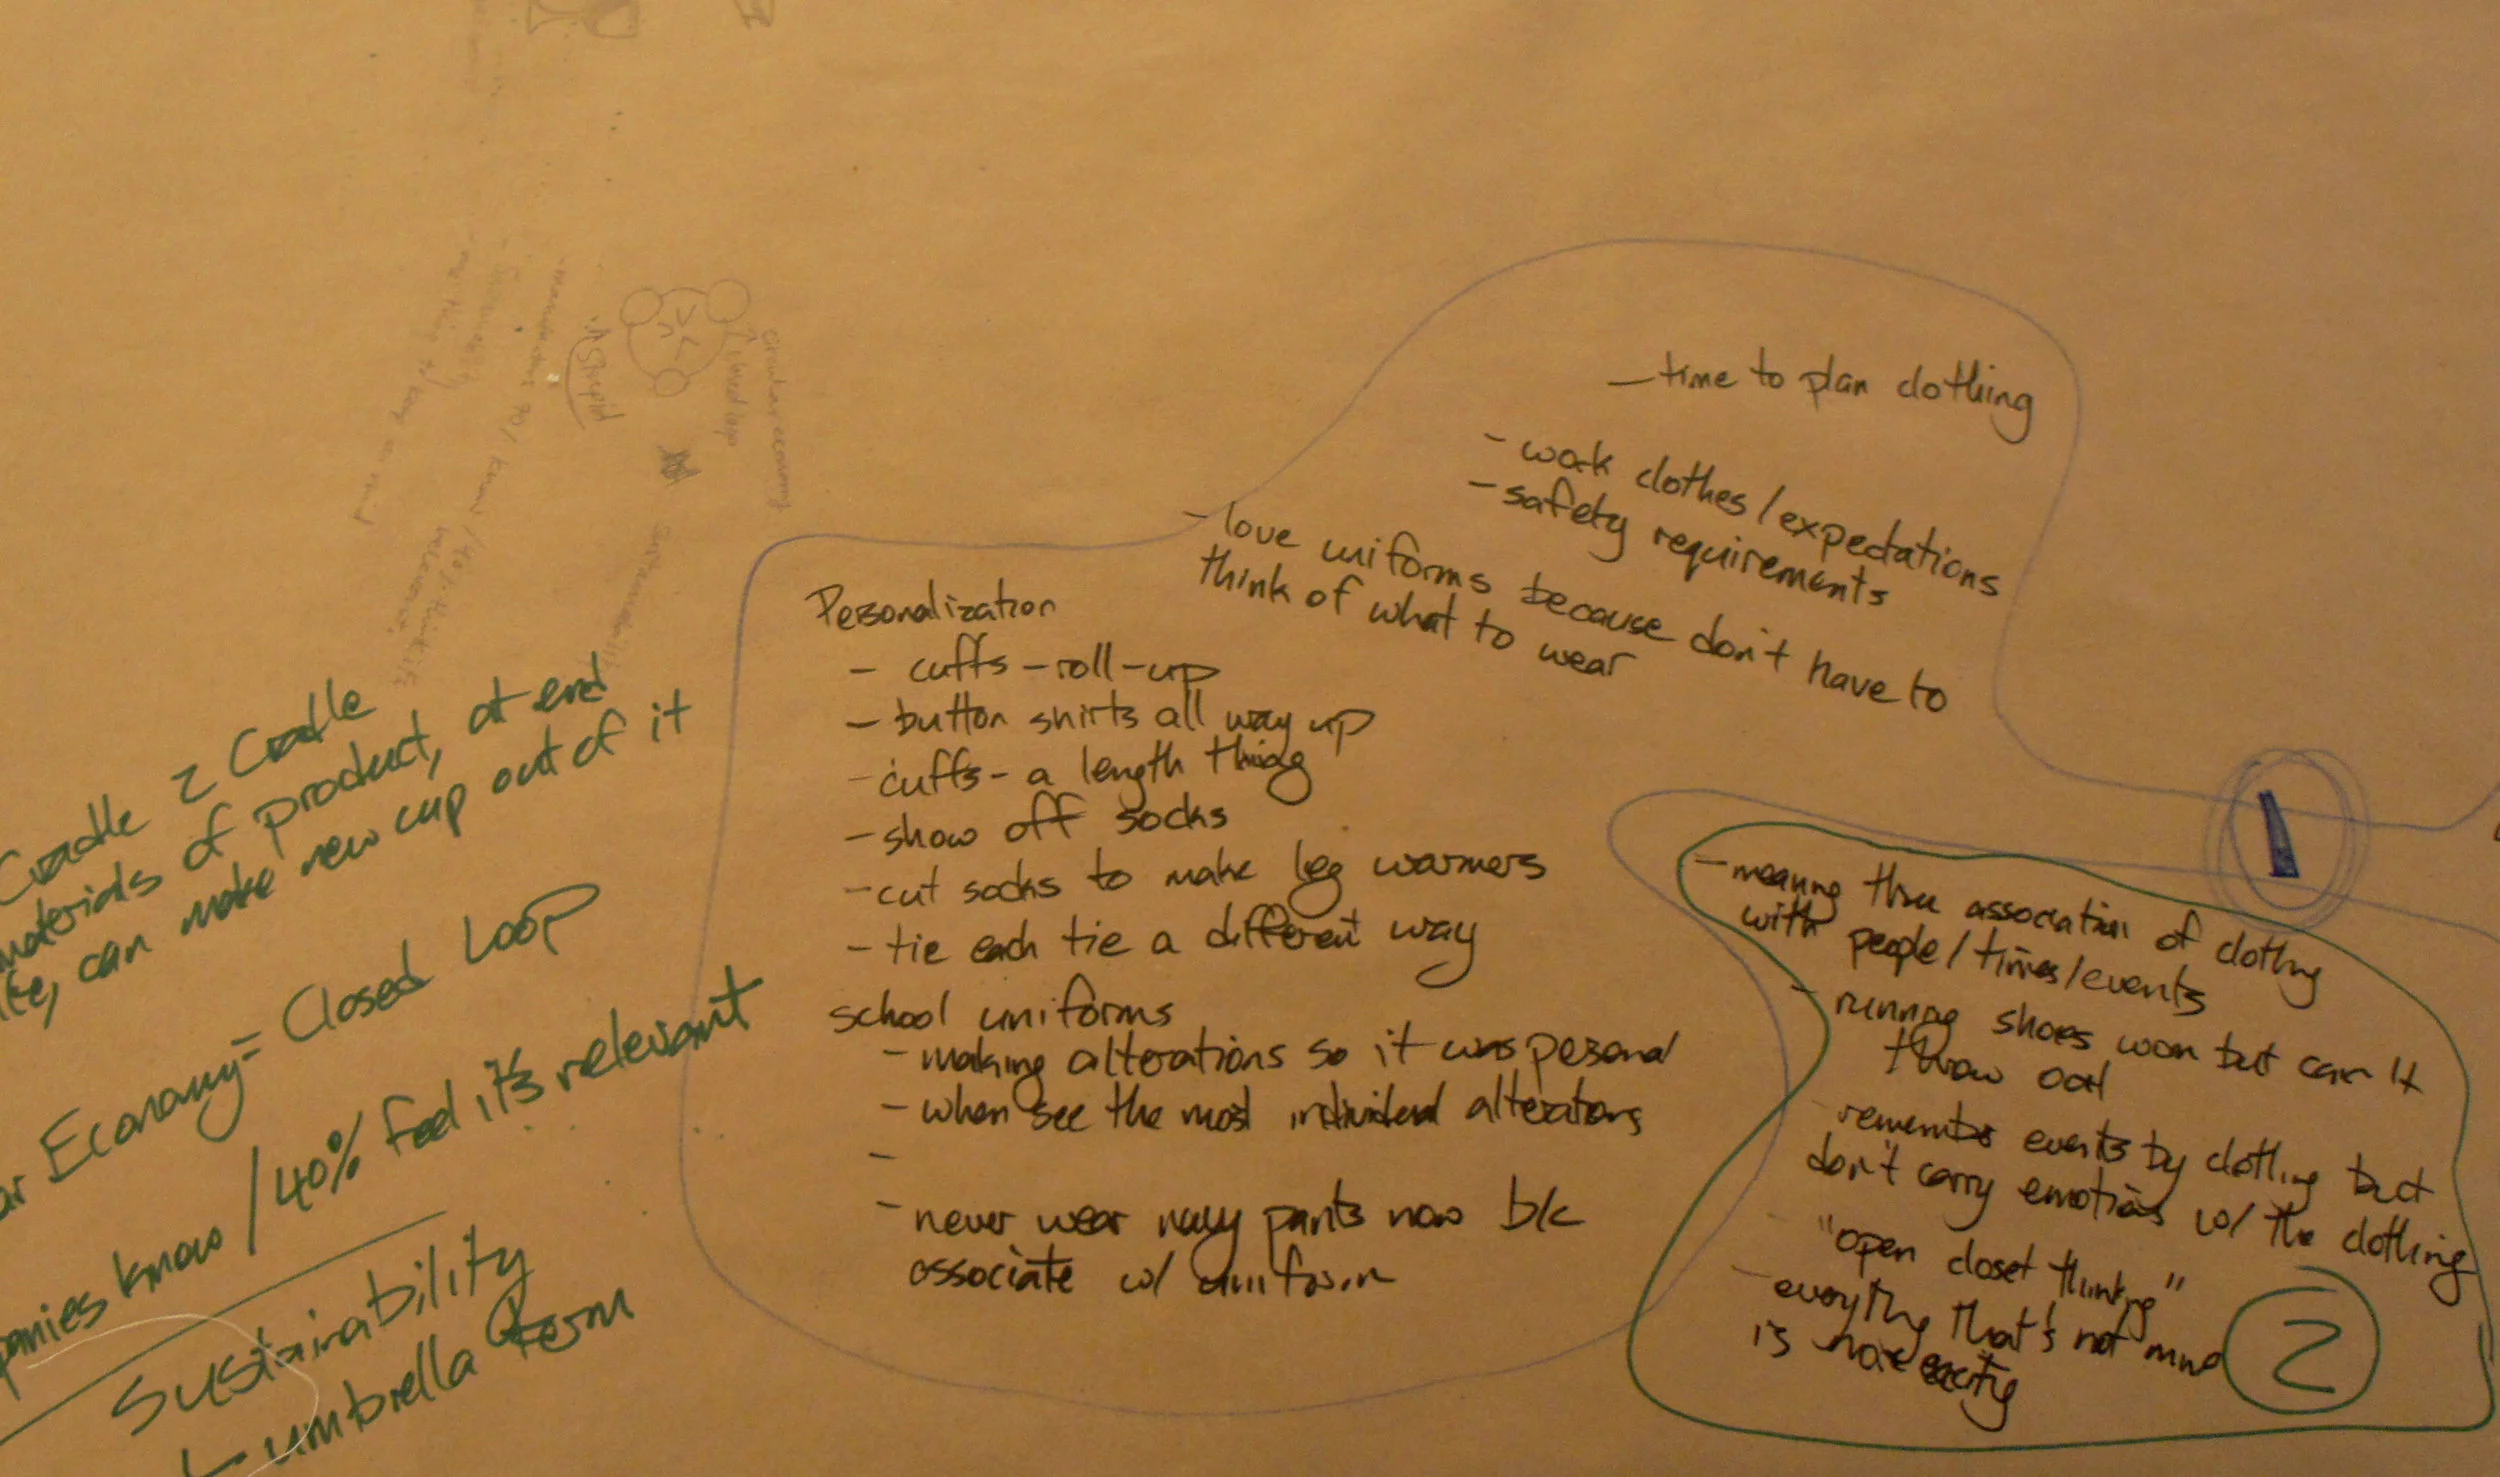 - time to plan clothing
- work clothes / expectations
- safety requirements
- love uniforms because don't have to
think of what to wear
Personalization
- cuffs - roll - up
- button shirts all way up
- cuffs - a length thing
- show off socks
- cut socks to make leg warmers
- tie each tie a different way
school uniforms
- making alterations so it was pesonal
- when see the most individual alterations
-
- never wear navy pants now b/c
associate w/ uniform
1
- meaning thru association of clothing
with people / times / events
- running shoes worn but can't
throw out
- remember events by clothing but
don't carry emotions w/ the clothing
- "open closet thinking"
- everything that's not mine
is more
2
Cradle 2 Cradle
materials of product, at end
can make new cup out of it
Economy = Closed Loop
know / 40% feel it's relevant
Sustainability
umbrella term
circular economy
closed loop
Stupid
Sustainability